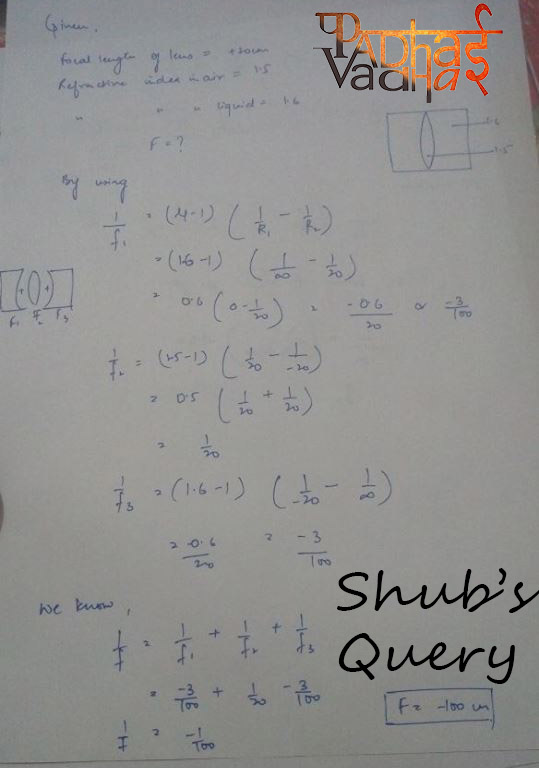 Given,
PADhaई
PADhaई Vadhaई
Focal length of lens = +20cm
Refractive index in air = 1.5
" " " liquid = 1.6
F = ?
1.6
1.5
By using
1/f₁ = (μ-1) ( 1/R₁ - 1/R₂ )
= (1.6-1) ( 1/∞ - 1/20 )
= 0.6 ( 0 - 1/20 ) = -0.6/20 or -3/100
f₁ f₂ f₃
1/f₂ = (1.5-1) ( 1/20 - 1/-20 )
= 0.5 ( 1/20 + 1/20 )
= 1/20
1/f₃ = (1.6-1) ( 1/-20 - 1/∞ )
= -0.6/20 = -3/100
We know,
1/f = 1/f₁ + 1/f₂ + 1/f₃
= -3/100 + 1/20 - 3/100
1/F = -1/100
F = -100 cm
Shub's
Query